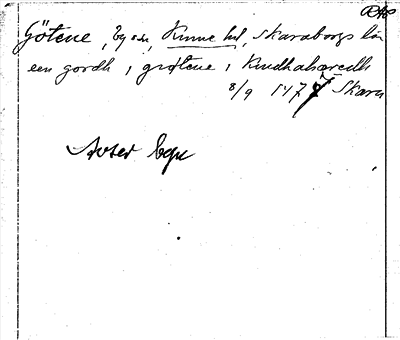 RAP
Götene, by o sn, Kinne hd, Skaraborgs län
een gordh i grøtene i Kindhahæredh
8/9 1477 Skara
Avser byn